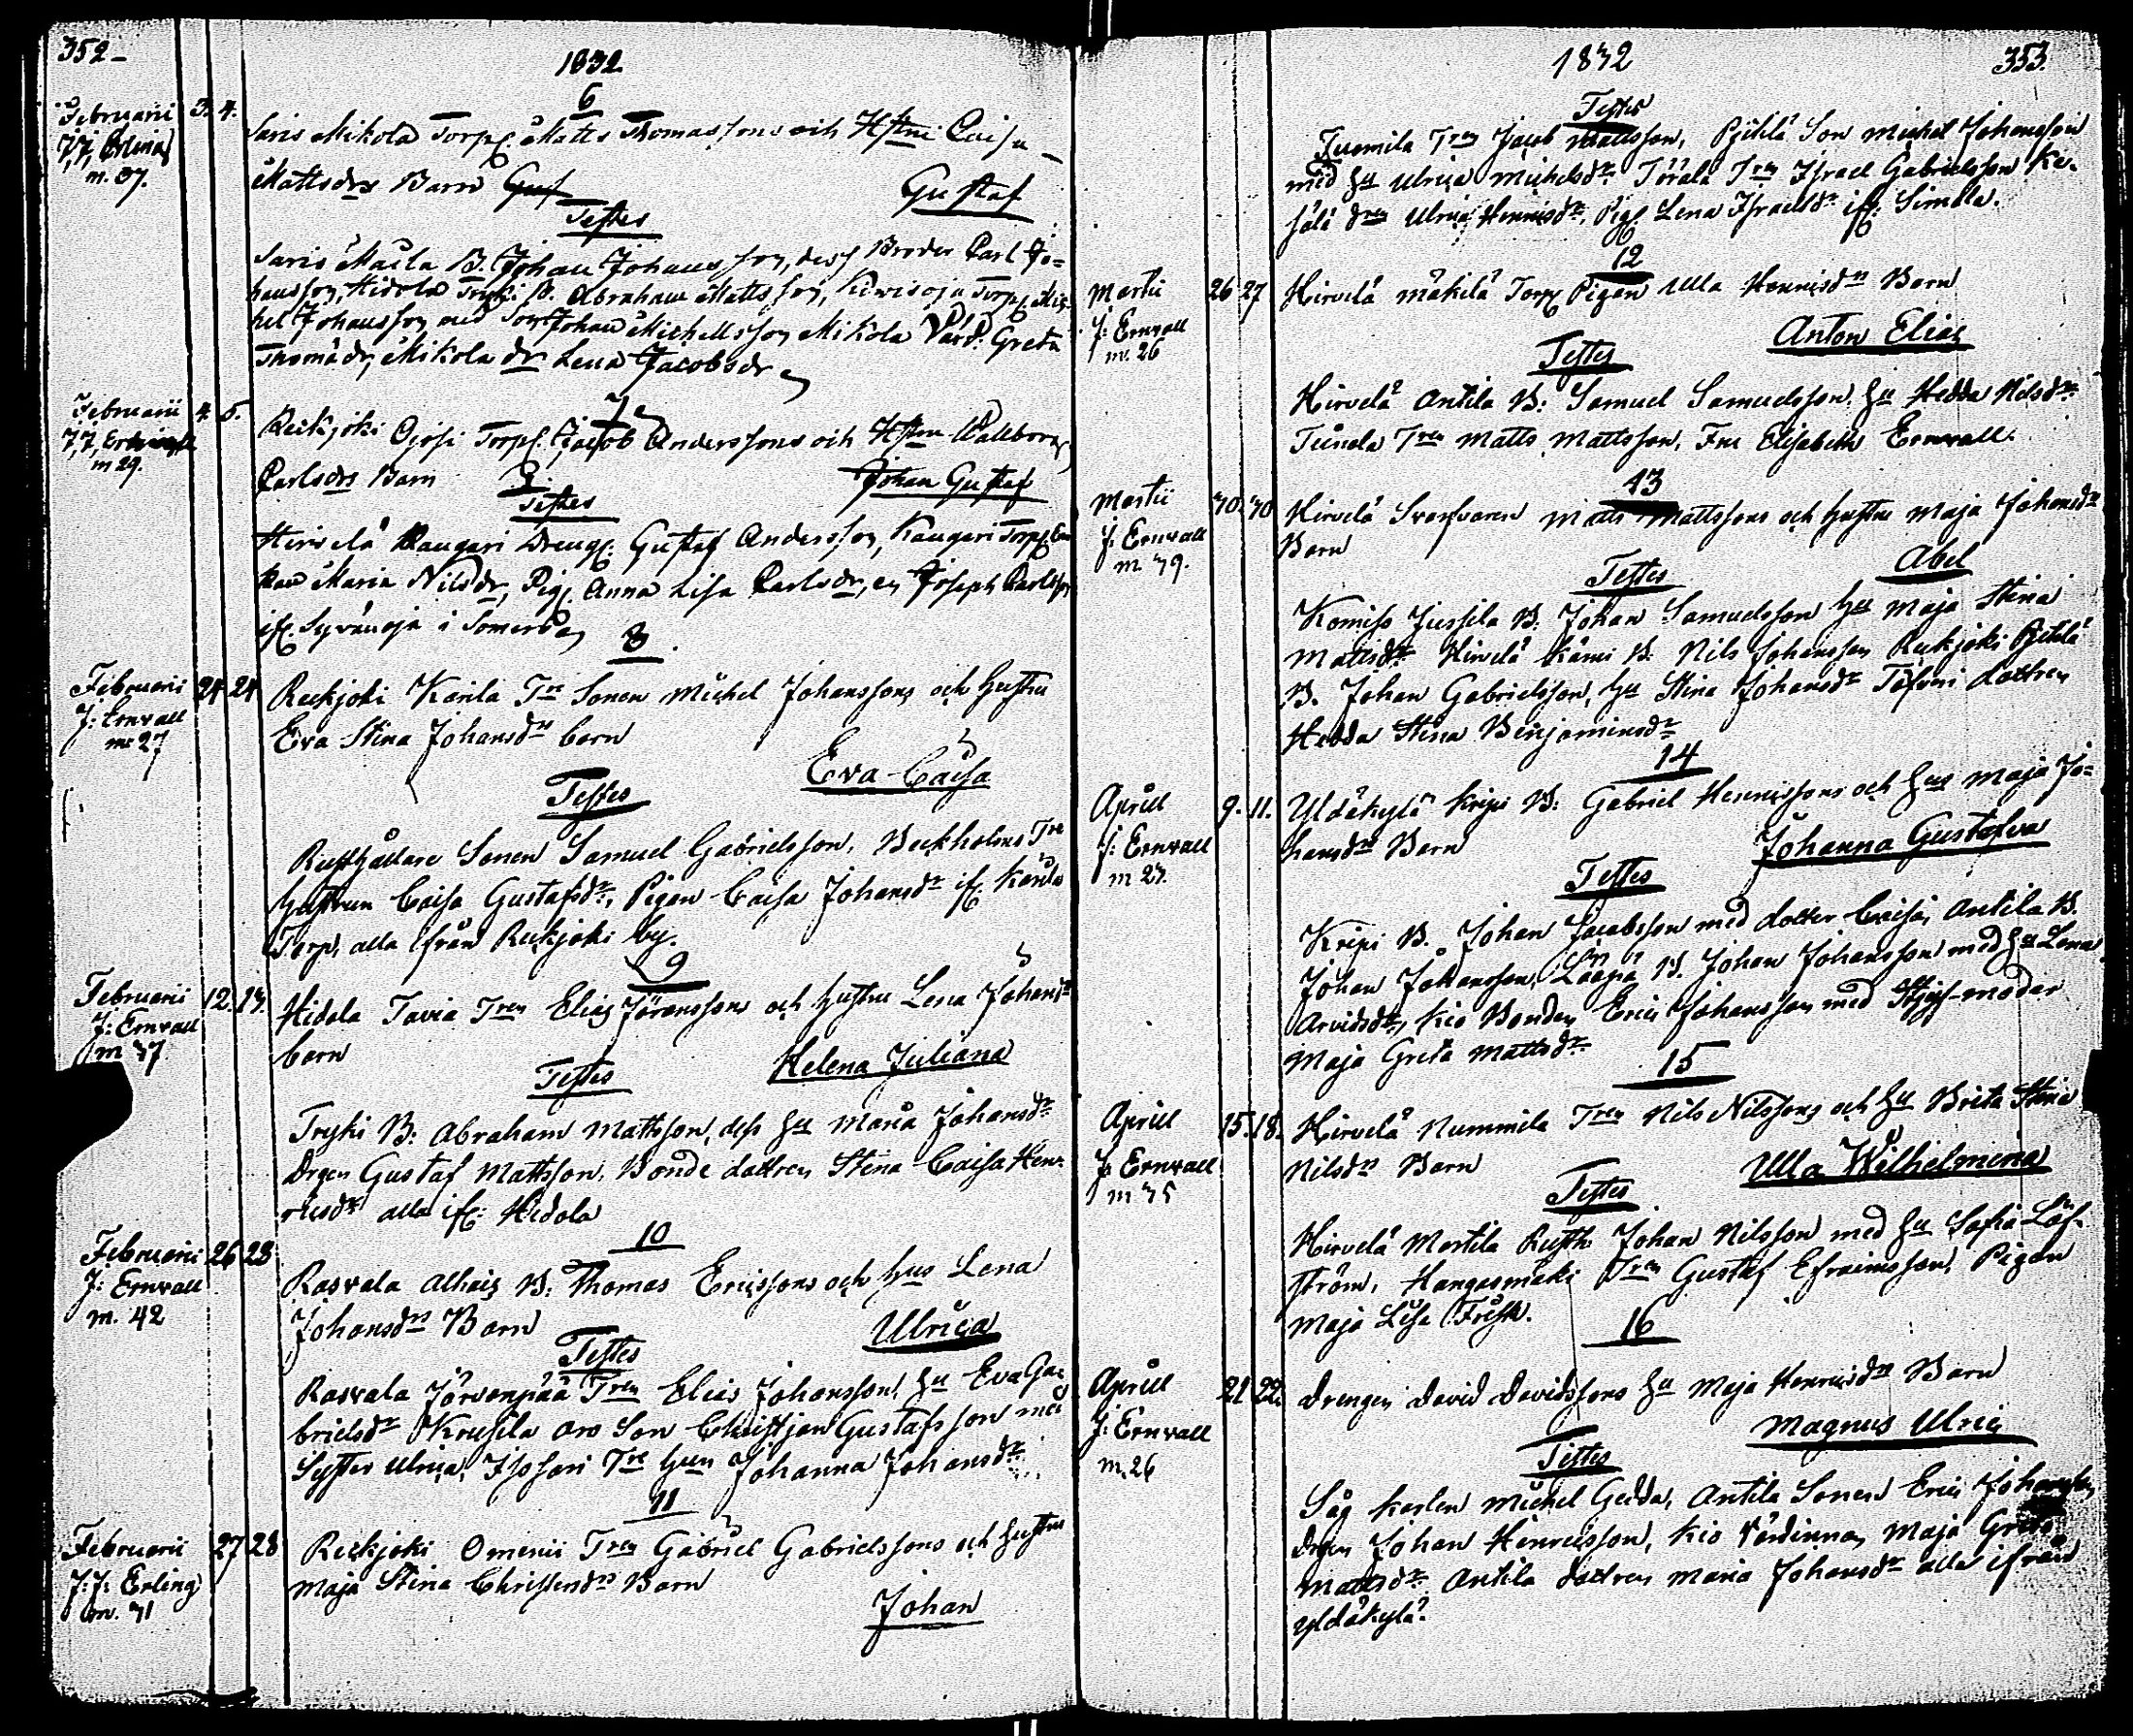 352
1832
6
Februarii 3. 4. Saris Mikola Torp. Matts Thomassons och Hstru Caisa
J. J. Erling
m. 37.
Mattsdrs Barn Gustaf
Testes
Saris Maila B. Johan Johansson, dess Broder Carl Jo=
hansson, Hidola Tryki B. Abraham Mattsson, Torp. Mic
hel Johansson med Son Johan Michelsson Mikola Värd: Greta
Thomædr, Mikola dr Lena Jacobsdr
7
Februarii 4. 5. Reckjoki Ojosi Torp. Jacob Anderssons och Hstru Wallborg
J. J. Erling
m 29.
Carlsdrs Barn Johan Gustaf
Testes
Hirvelä Kaugari Dreng. Gustaf Andersson, Kaugari Torp.
Maria Nilsdr, Pig. Anna Lisa Carlsdr, Joseph Carlsson
if. Syvänoja i Somero
8
Februarii 24 24 Reckjoki Karila Tre Sonen Michel Johanssons och hustru
J: Ernvall
m 27
Eva Stina Johansdrs barn
Eva Caisa
Testes
Rusthållare Sonen Samuel Gabrielsson, Beckholms Tre
hustrun Caisa Gustafsdr, Pigan Caisa Johansdr if. Karila
Torp, alla ifrån Reckjoki by.
9
Februarii 12. 13. Hidola Tavia Tren Elias Göranssons och hustru Lena Johansdrs
J: Ernvall
m 37
barn Helena Juliana
Testes
Tryki B: Abraham Mattsson, dess hu Maria Johansdr
Drgen Gustaf Mattsson, Bonde dottren Stina Caisa Hen-
ricsdr alla if. Hidola
10
Februarii 26 28 Rasvala Alhais B: Thomas Ericssons och hus Lena
J: Ernvall
m. 42
Johansdrs Barn Ulrica
Testes
Rasvala Jörvenpää Tren Elias Johansson, hu Eva Ga-
brielsdr Krusila Aro Son Christjan Gustafsson med
Syster Ulrica, Issari Tre hun Johanna Johansdr
11
Februarii 27 28 Reckjoki Omenii Tren Gabriel Gabrielssons och hustru
J: J: Erling
m. 31
Maja Stina Christersdrs Barn
Johan
1832
353.
Testes
Juomila Tren Jacob Mattsson, Pjetilä Son Michel Johansson
med hu Ulrica Michelsdr Törala Tren Israel Gabrielsson
drn Ulrica Henricsdr, Pig. Lena Israelsdr if. Simola.
12
Martii 26 27 Hirvelä Mäkilä Torp Pigan Ulla Henricsdrs Barn
J: Ernvall
m. 26
Anton Elias
Testes
Hirvelä Antila B: Samuel Samuelsson hu Hedda Nilsdr
Tunela Tren Matts Mattsson, Fru Elisabeth Ernvall.
13
Martii 30. 30 Hirvelä Svarfvaren Matts Mattssons och hustrus Maja Johansdrs
J: Ernvall
m 39.
Barn Abel
Testes
Komiss Jussila B: Johan Samuelsson hu Maja Stina
Mattsdr Hirvelä Kämi B: Nils Johansson Reckjoki Pjetilä
B. Johan Gabrielsson, hu Stina Johansdr Tafvini dottren
Hedda Stina Benjaminsdr
14
Aprill 9. 11. Yldäkylä Kripi B: Gabriel Henricssons och hus Maja Jo=
J: Ernvall
m 27.
hansdrs Barn Johanna Gustafva
Testes
Kripi B. Johan Jacobsson med dotter Caisa, Antila B.
Johan Johansson, Laapa B. Johan Johansson med hu Lena
Arvidsdr, Kio Bonden Eric Johansson med Styf-moder
Maja Greta Mattsdr
15
Aprill 15. 18. Hirvelä Nummila Tren Nils Nilssons och hu Brita Stina
J: Ernvall
m 35
Nilsdrs Barn Ulla Wilhelmina
Testes
Hirvelä Mortila Rusth. Johan Nilsson med hu Sofia Löf-
ström, Hangasmäki Tren Gustaf Efraimsson, Pigan
Maja Lisa Frisk.
16
Aprill 21 22. Drengen David Davidssons hu Maja Henricsdrs Barn
J: Ernvall
m. 26
Magnus Ulric
Testes
Såg karlen Michel Gedda, Antila Sonen Eric Johansson
Drgen Johan Henricsson, Kio Värdinnan Maja Greta
Mattsdr Antila dottren Maria Johansdr alla ifrån
Yldäkylä.